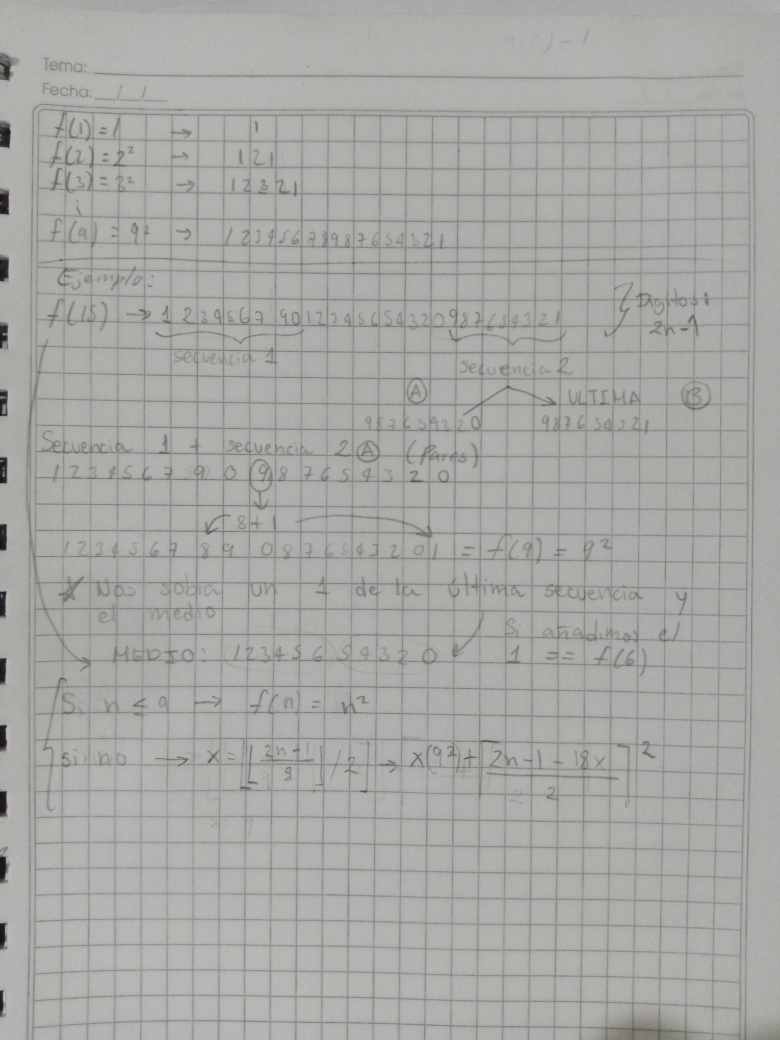 Tema:
Fecha: / /
f(1) = 1 → 1
f(2) = 2² → 121
f(3) = 3² → 12321
⋮
f(9) = 9² → 12345678987654321
Ejemplo:
f(15) → 1 2 3 4 5 6 7 9 0 1 2 3 4 5 6 5 4 3 2 0 9 8 7 6 5 4 3 2 1 } Digitos: 2n-1
secuencia 1
secuencia 2
Ⓐ ULTIMA Ⓑ
987654320 987654321
Secuencia 1 + secuencia 2 Ⓐ (Pares)
1 2 3 4 5 6 7 9 0 ⑨ 8 7 6 5 4 3 2 0
8+1
1 2 3 4 5 6 7 8 9 0 8 7 6 5 4 3 2 0 1 = f(9) = 9²
* Nos sobra un 1 de la última secuencia y
el medio
Si añadimos el
MEDIO: 1 2 3 4 5 6 5 4 3 2 0 1 == f(6)
Si n ≤ 9 → f(n) = n²
si no → x = ⌊⌊(2n-1)/9⌋/2⌋ → x(9²) + ⌈(2n-1-18x)/2⌉²